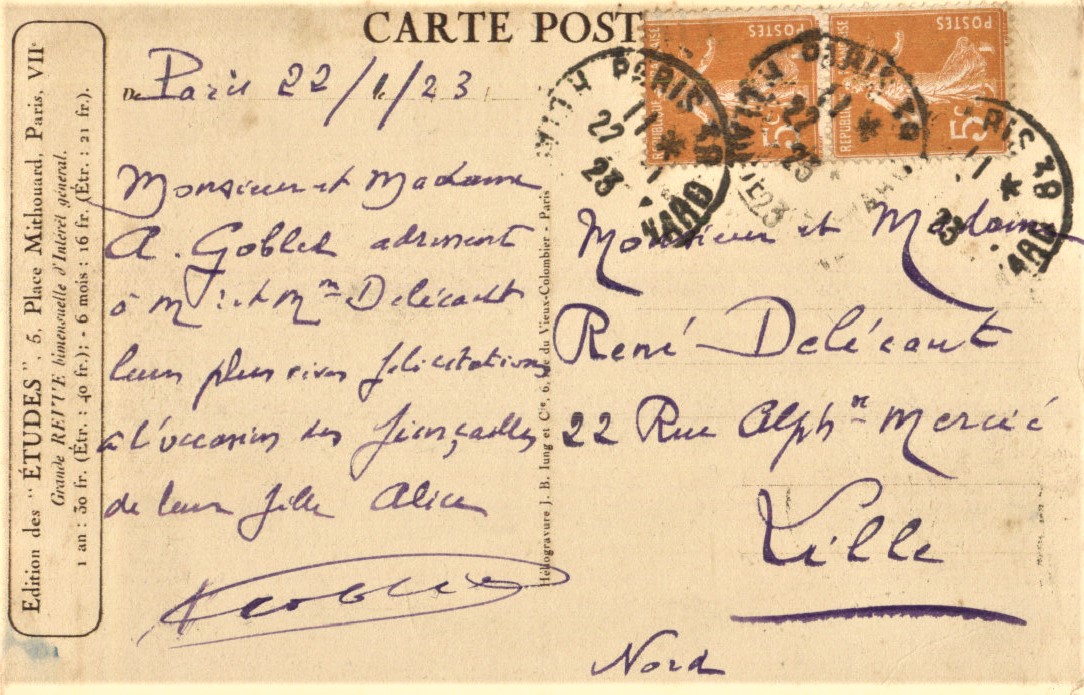 CARTE POST
De Paris 22/1/23
Monsieur et Madame
A. Goblet adressent
à Mr et Mme Delécaut
leurs plus vives félicitations
à l'occasion des fiançailles
de leur fille Alice
Monsieur et Madame
René Delécaut
22 Rue Alphse Mercié
Lille
Nord
Edition des "ÉTUDES", 5, Place Mithouard, Paris, VIIe
Grande REVUE bimensuelle d'Intérêt général.
1 an : 30 fr. (Étr. : 40 fr.); - 6 mois : 16 fr. (Étr. : 21 fr.).
Héliogravure J. B. Iung et Cie, 6, rue du Vieux-Colombier - Paris
POSTES
5c
POSTES
5c
PARIS 48
22
23
PARIS 48
22
23
RIS 48
23